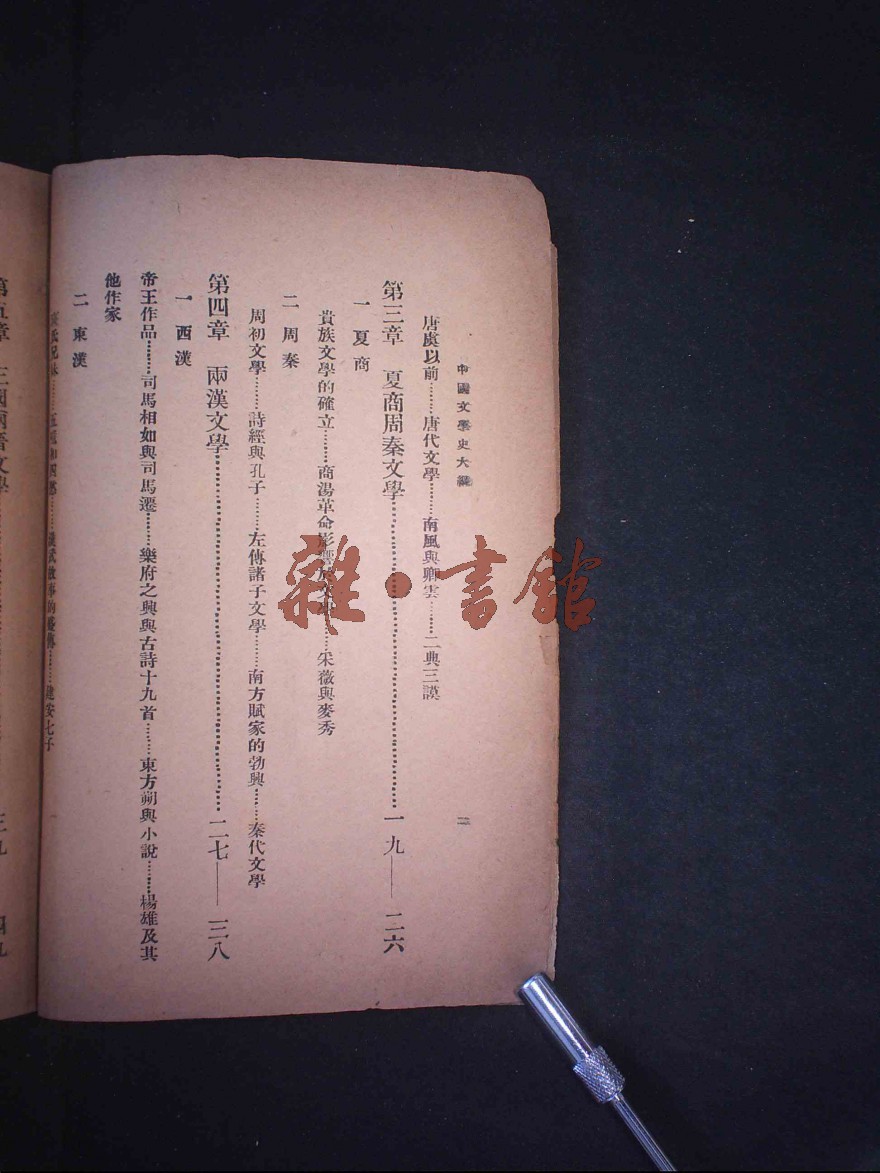 中國文學史大綱
二
唐虞以前………唐代文學………南風與卿雲………二典三謨
第三章 夏商周秦文學………一九——二六
一 夏商
貴族文學的確立………商湯革命影響………采薇與麥秀
二 周秦
周初文學………詩經與孔子………左傳諸子文學………南方賦家的勃興………秦代文學
第四章 兩漢文學………二七——三八
一 西漢
帝王作品………司馬相如與司馬遷………樂府之興與古詩十九首………東方朔與小說………楊雄及其
他作家
二 東漢
漢武故事的………建安七子
第五章 三國兩晉文學
雜·書館